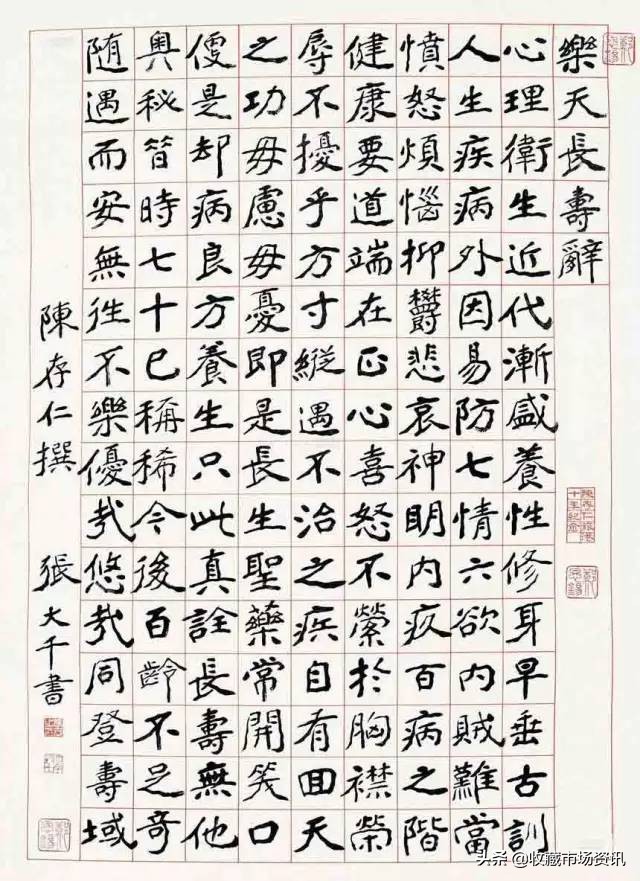 樂天長壽辭
心理衛生近代漸盛養性修身早垂古訓
人生疾病外因易防七情六欲内賊難當
憤怒煩惱抑欝悲哀神眀内疚百病之階
健康要道端在正心喜怒不縈於胸襟榮
辱不擾乎方寸縱遇不治之疾自有回天
之功毋慮毋憂即是長生聖藥常開笑口
便是却病良方養生只此真詮長壽無他
奥秘昔時七十已稱稀今後百齡不足奇
随遇而安無往不樂優哉悠哉同登壽域
陳存仁撰 張大千書
头条 @收藏市场资讯